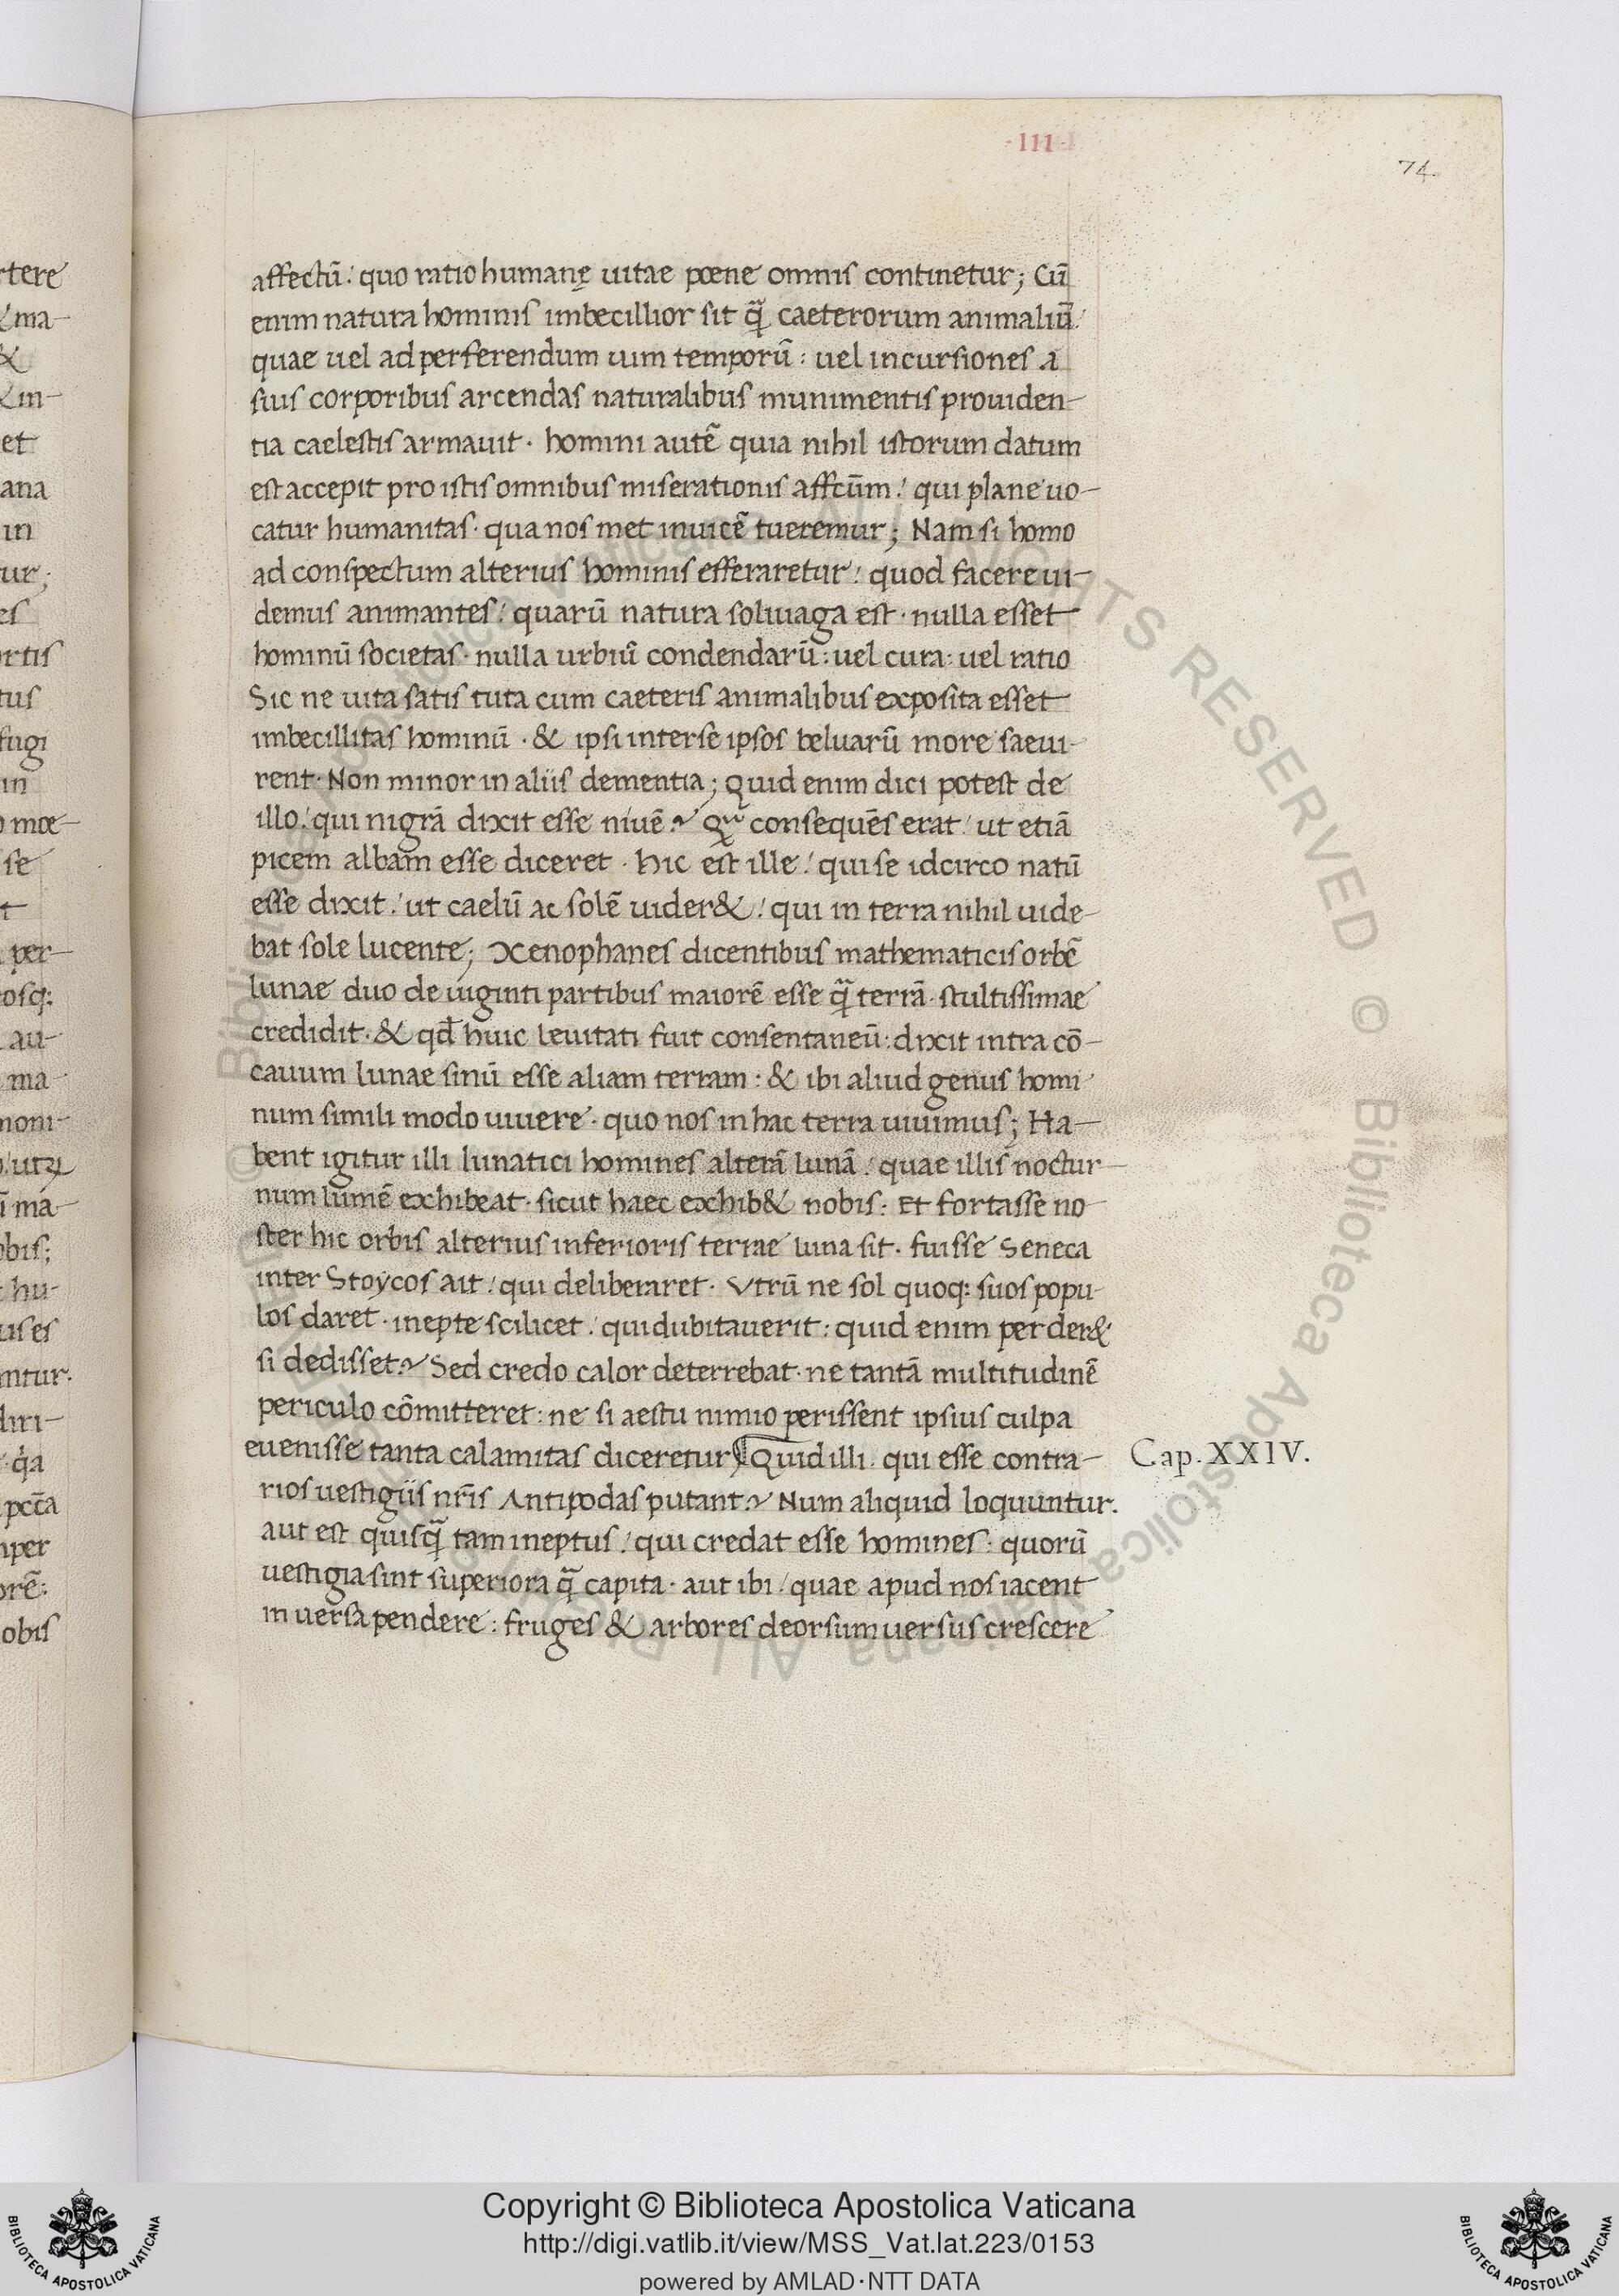 ·III·
74
affectū: quo ratio humanę uitae pœne omnis continetur; Cū
enim natura hominis imbecillior sit q̄ caeterorum animaliū:
quae uel ad perferendum uim temporū: uel incursiones a
suis corporibus arcendas naturalibus munimentis prouiden-
tia caelestis armauit. homini autē quia nihil istorum datum
est accepit pro istis omnibus miserationis affcūm: qui plane uo-
catur humanitas. qua nos met inuicē tueremur; Nam si homo
ad conspectum alterius hominis efferaretur: quod facere ui-
demus animantes: quarū natura soliuaga est. nulla esset
hominū societas. nulla urbiū condendarū: uel cura: uel ratio
Sic ne uita satis tuta cum caeteris animalibus exposita esset
imbecillitas hominū. & ipsi inter se ipsos beluarū more saeui-
rent. Non minor in aliis dementia; Quid enim dici potest de
illo: qui nigrā dixit esse niuē? Qm̄ consequēs erat: ut etiā
picem albam esse diceret. hic est ille: qui se idcirco natū
esse dixit: ut caelū ac solē uider&: qui in terra nihil uide-
bat sole lucente; Xenophanes dicentibus mathematicis orbē
lunae duo de uiginti partibus maiorē esse q̄ terrā. stultissimae
credidit. & qd̄ huic leuitati fuit consentaneū: dixit intra cō-
cauum lunae sinū esse aliam terram: & ibi aliud genus homi
num simili modo uiuere. quo nos in hac terra uiuimus; Ha-
bent igitur illi lunatici homines alterā lunā: quae illis noctur-
num lumē exhibeat. sicut haec exhib& nobis: Et fortasse no-
ster hic orbis alterius inferioris terrae luna sit. fuisse Seneca
inter Stoycos ait: qui deliberaret. Vtrū ne sol quoq: suos popu-
los daret. inepte scilicet: qui dubitauerit: quid enim perder&
si dedisset? Sed credo calor deterrebat. ne tantā multitudinē
periculo cōmitteret: ne si aestu nimio perissent ipsius culpa
euenisse tanta calamitas diceretur; Quid illi. qui esse contra-
Cap. XXIV.
rios uestigiis nr̄is Antipodas putant? Num aliquid loquuntur.
aut est quisq̄ tam ineptus: qui credat esse homines: quorū
uestigia sint superiora q̄ capita. aut ibi: quae apud nos iacent
inuersa pendere: fruges & arbores deorsum uersus crescere
Copyright © Biblioteca Apostolica Vaticana
http://digi.vatlib.it/view/MSS_Vat.lat.223/0153
powered by AMLAD·NTT DATA
BIBLIOTECA APOSTOLICA VATICANA
BIBLIOTECA APOSTOLICA VATICANA